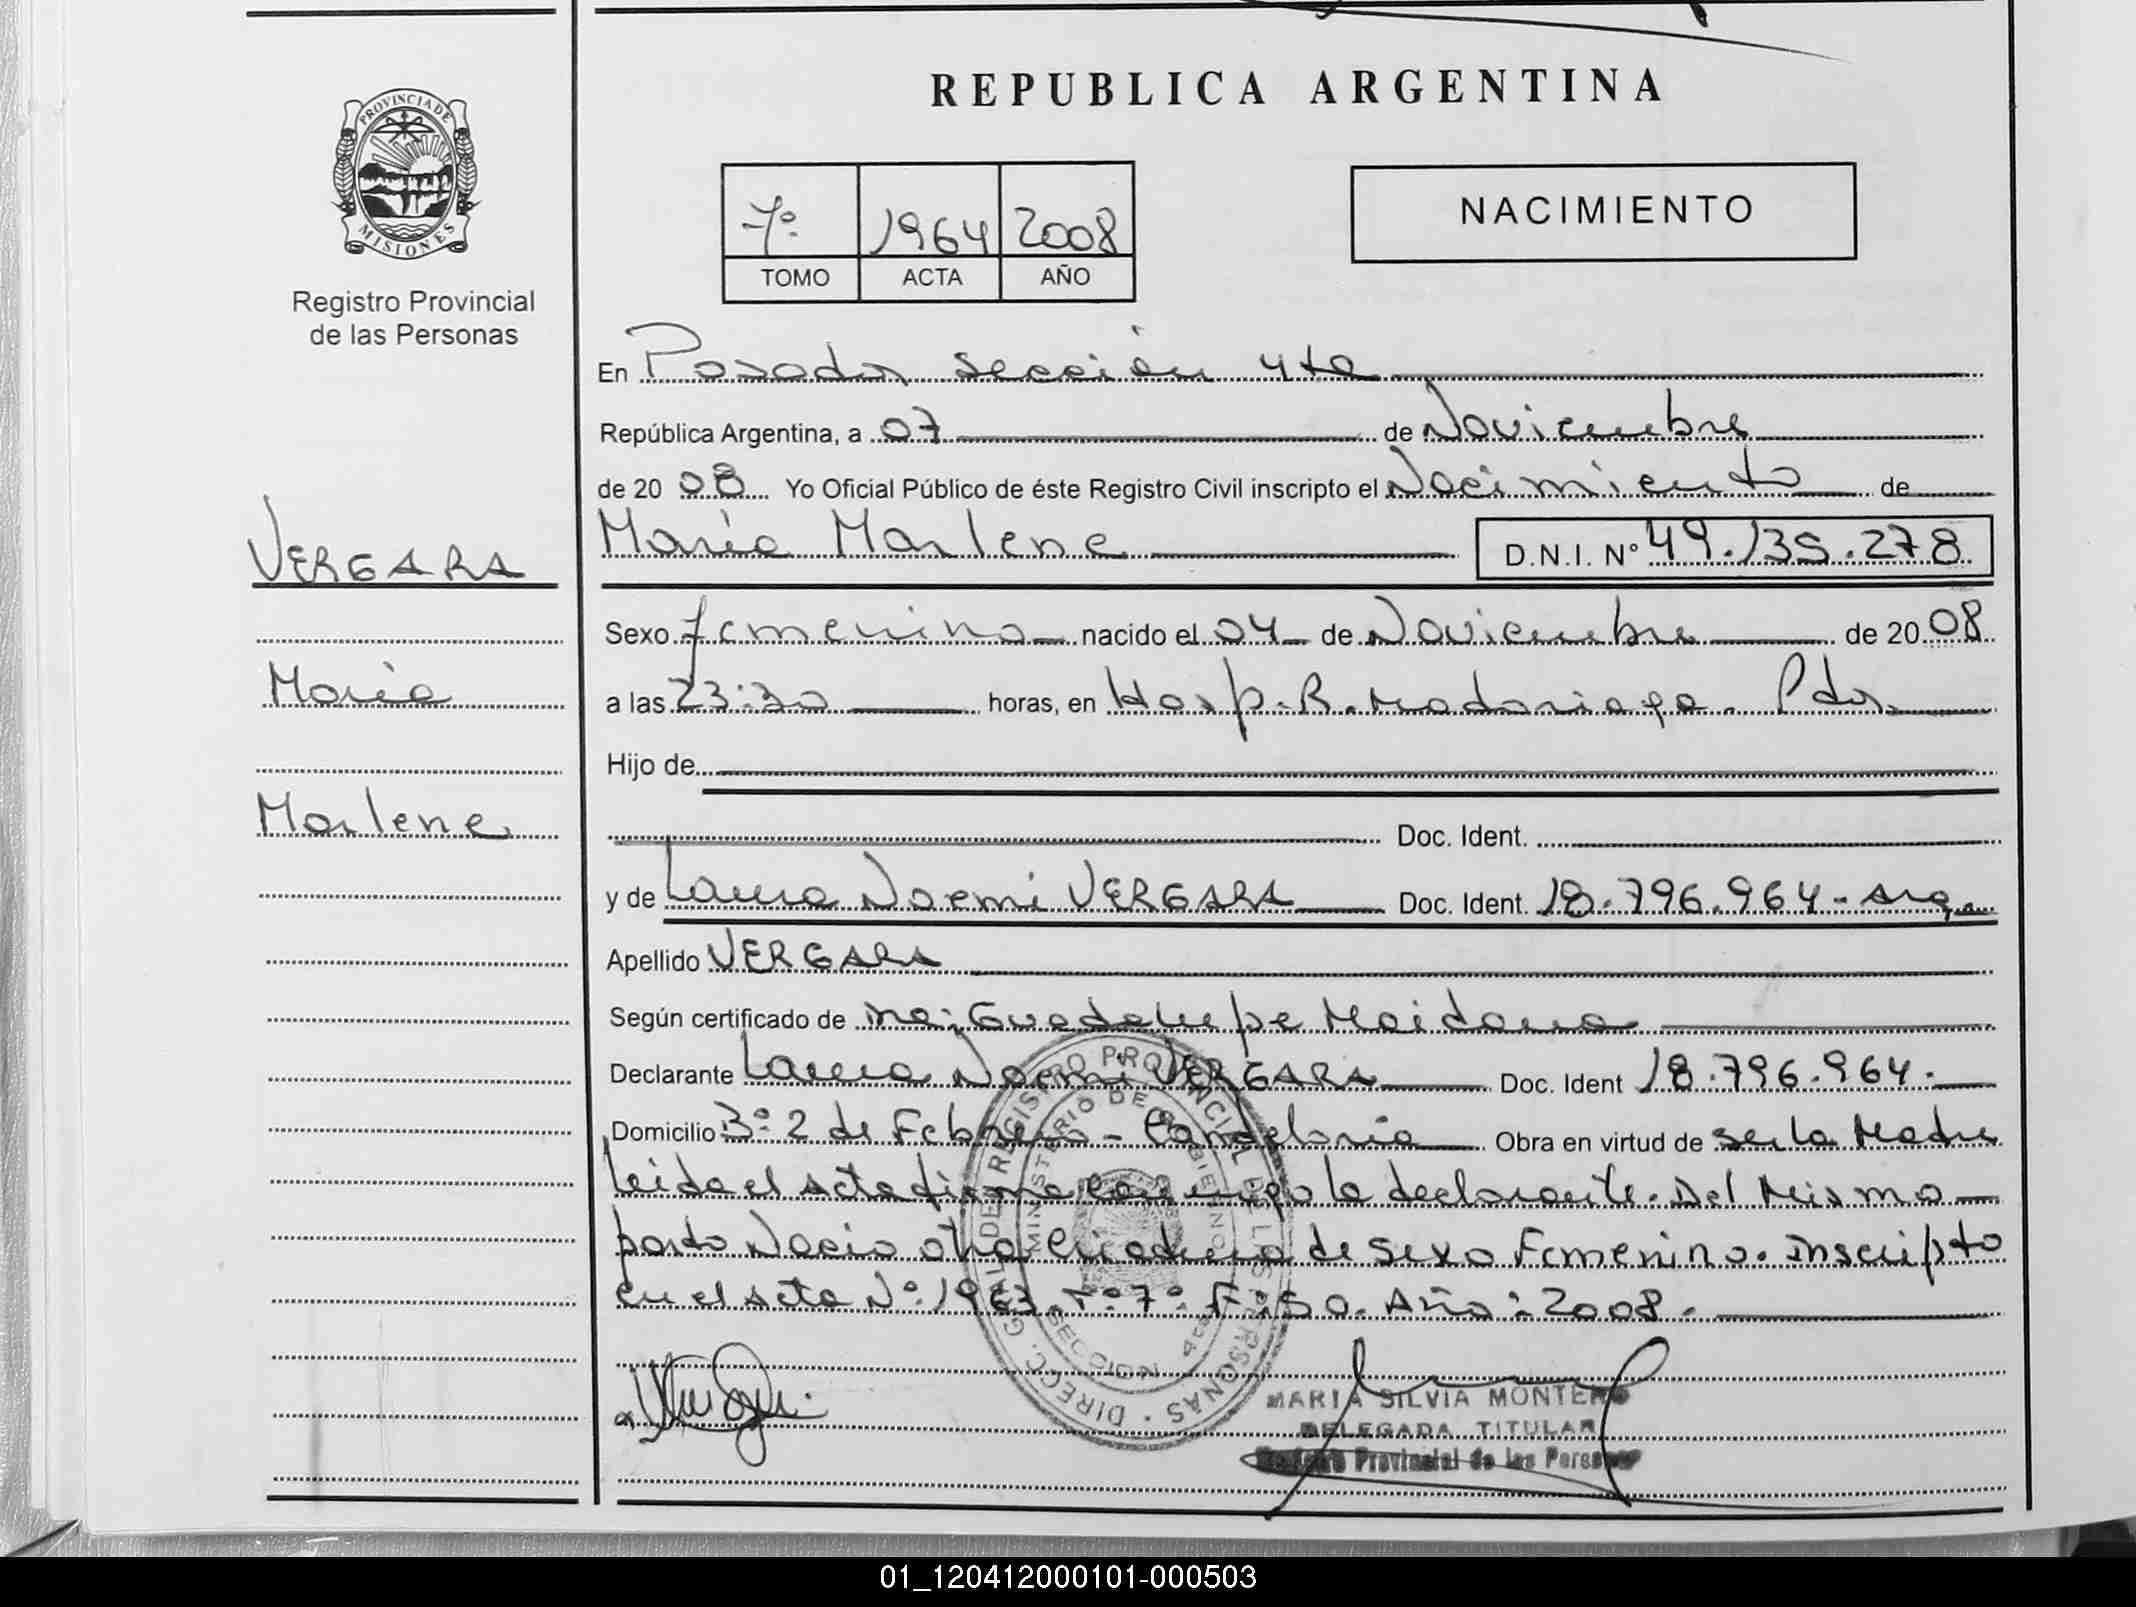 REPUBLICA ARGENTINA
PROVINCIA DE MISIONES
Registro Provincial
de las Personas
7º 1964 2008
TOMO ACTA AÑO
NACIMIENTO
En Posadas sección 4ta
República Argentina, a 07 de Noviembre
de 2008 Yo Oficial Público de éste Registro Civil inscripto el Nacimiento de
VERGARA
María Marlene D.N.I. Nº 49.135.278
Sexo femenino nacido el 04 de Noviembre de 2008
María
a las 23:30 horas, en Hosp. R. Madariaga. Pdas.
Hijo de
Marlene
Doc. Ident.
y de Laura Noemi VERGARA Doc. Ident. 18.796.964 - Arg.
Apellido VERGARA
Según certificado de Guadalupe Maidana
Declarante Laura Noemi VERGARA Doc. Ident 18.796.964.
Domicilio Bº 2 de Febrero - Candelaria Obra en virtud de ser la Madre
leida el acta firma conmigo la declarante. Del Mismo
parto Nacio otra criatura de sexo Femenino. inscripto
en el acta Nº 1963. Tº 7º F. 50. Año: 2008.
DIRECC. GRAL DEL REGISTRO PROVINCIAL DE LAS PERSONAS
MINISTERIO DE GOBIERNO
SECCION 4ta
MARIA SILVIA MONTERO
DELEGADA TITULAR
Registro Provincial de las Personas
01_120412000101-000503